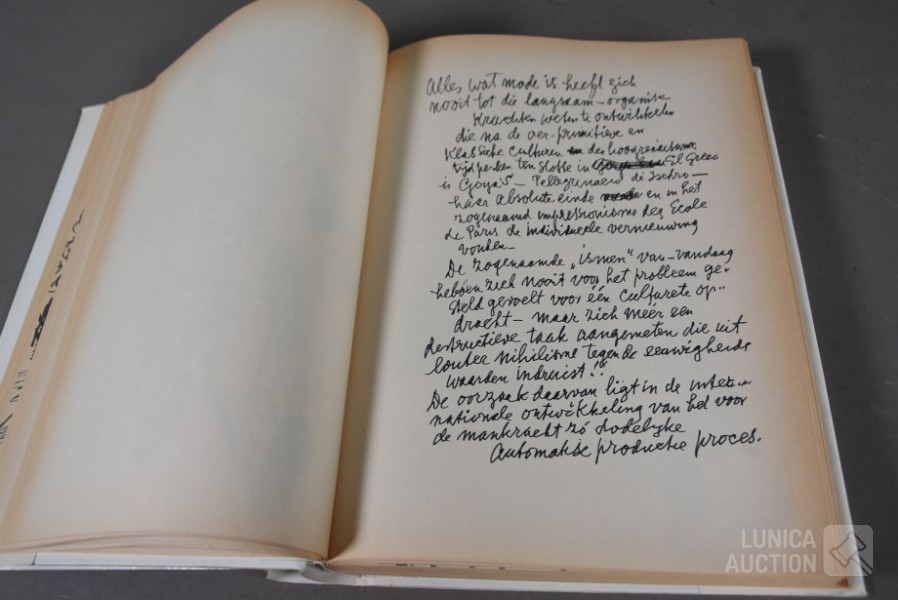 Alles wat mode is heeft zich
nooit tot die langzaam-organise
Krachten weten te ontwikkelen
die na de oer-primitieve en
Klassieke culturen en der hoogrenaissance
tijdperken ten slotte in El Greco
is Goya's - Pellegrinaeio di Ischro -
haar absolute einde en in het
zogenaamd impressionisme des Ecole
de Paris de individueele vernieuwing
vonden -
De zogenaamde „ismen" van-vandaag
hebben zich nooit voor het probleem ge-
steld gevoelt voor één culturele op-
dracht - maar zich méér een
destructieve taak aangemeten die uit
louter nihilisme tegen de eeuwigheids
waarden indruist!
De oorzaak daarvan ligt in de inter-
nationale ontwikkeling van het voor
de mankracht zó dodelijke
Automatise productie proces.
LUNICA
AUCTION